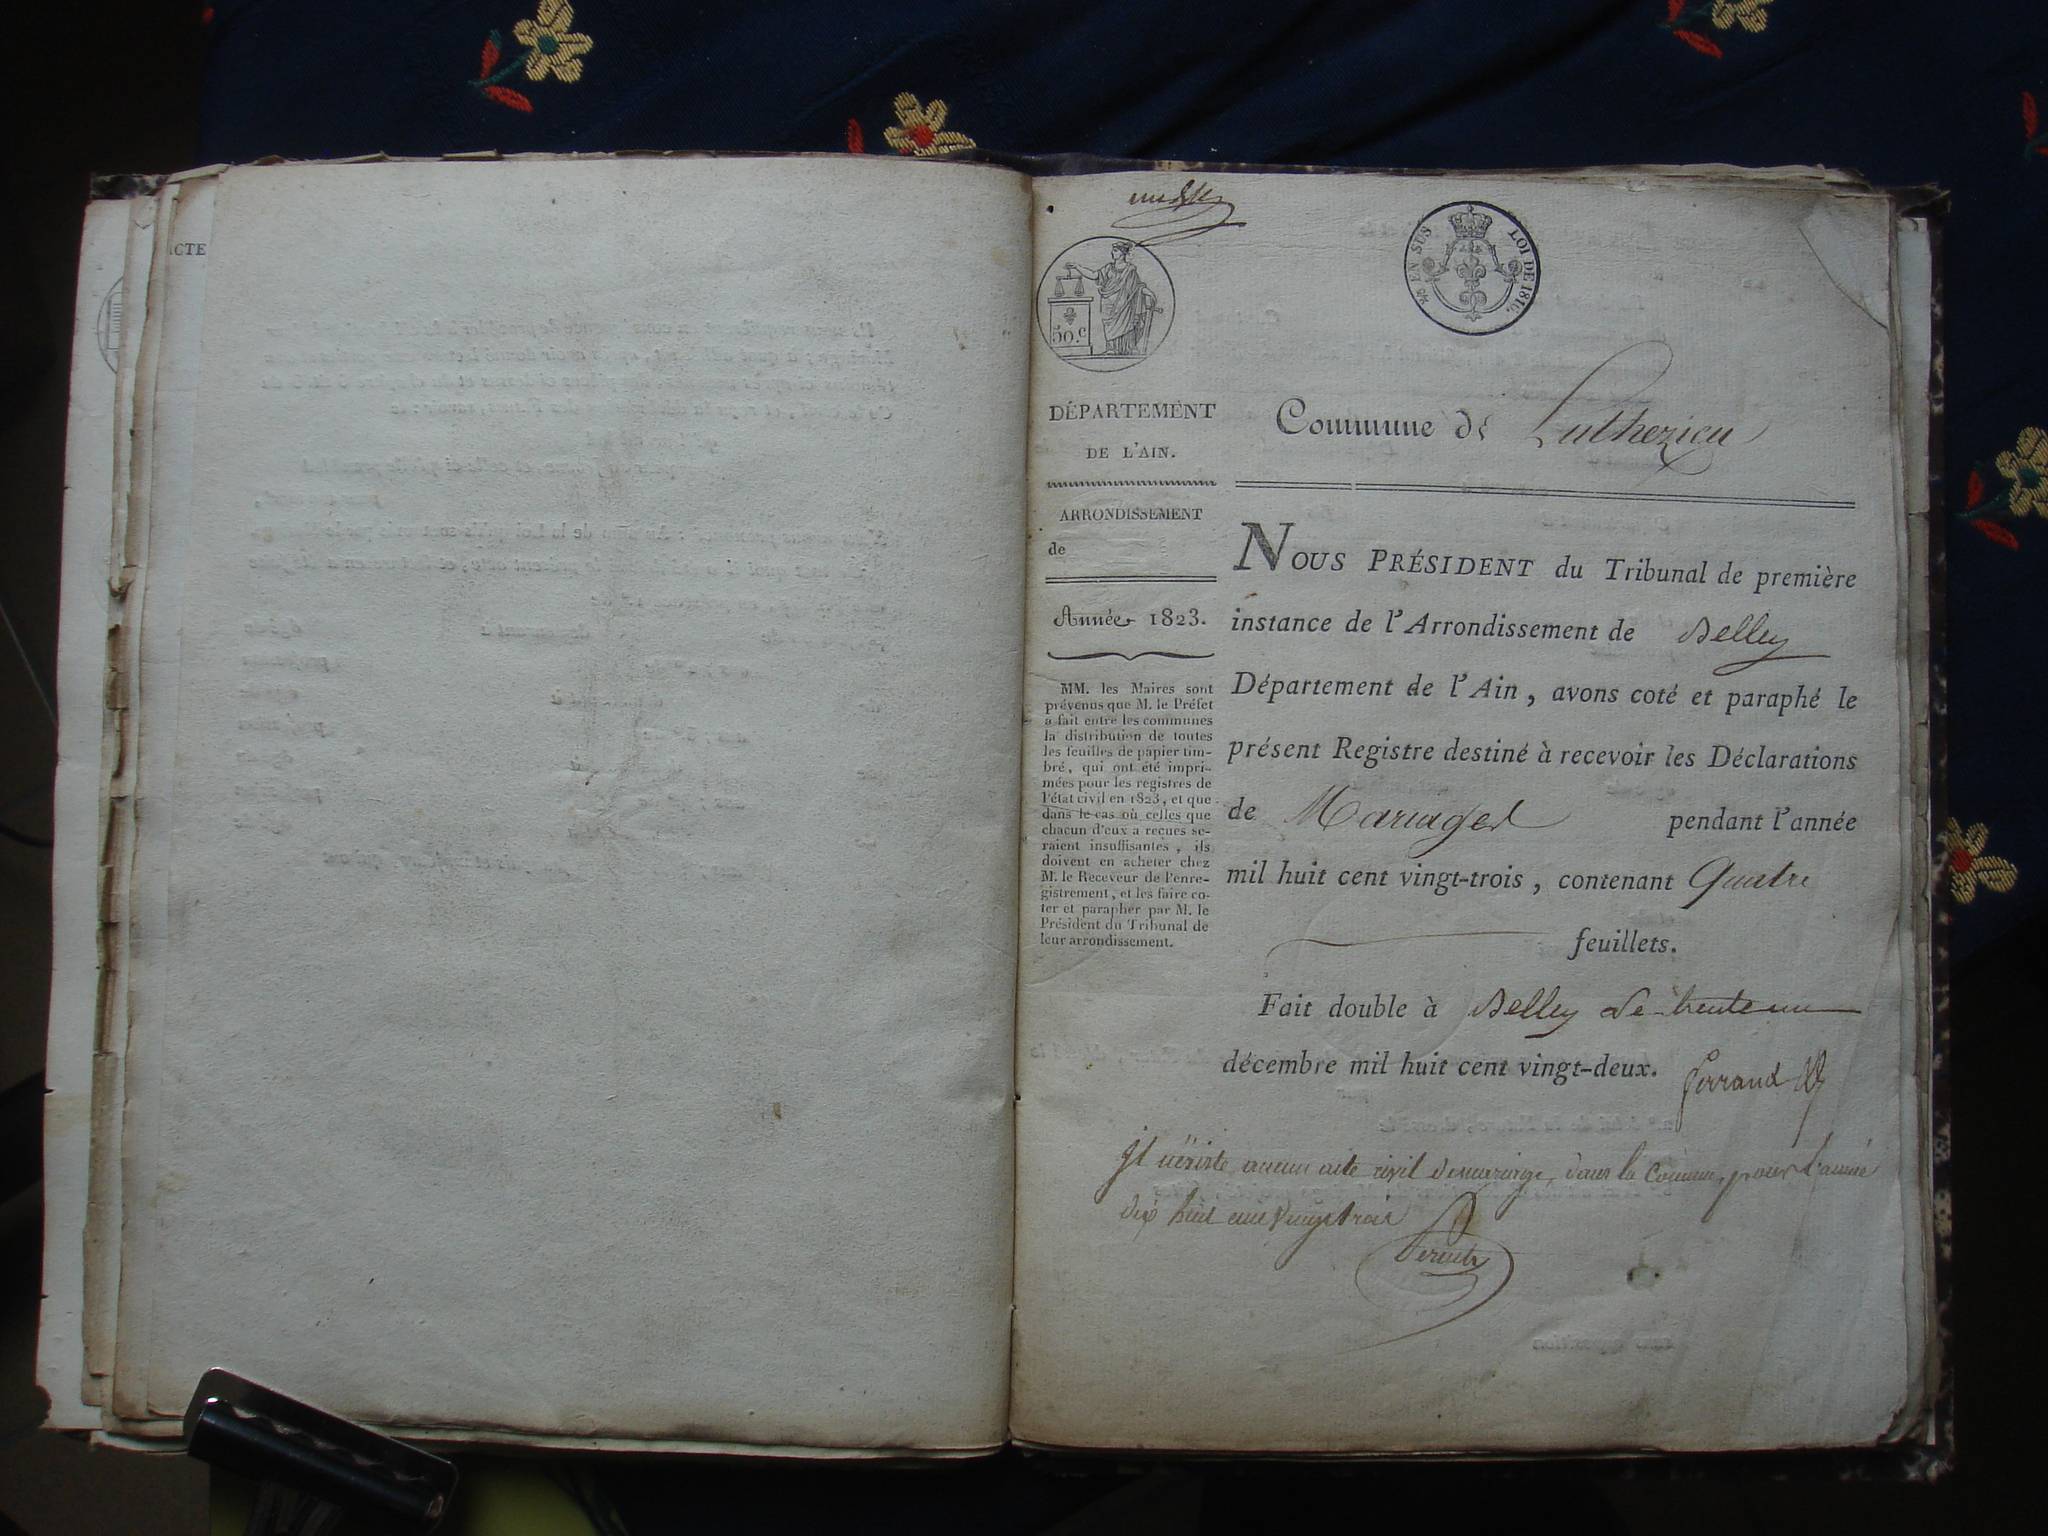 ACTE
50.c
¼ EN SUS LOI DE 1816.
DÉPARTEMENT
DE L'AIN.
ARRONDISSEMENT
de
Année 1823.
MM. les Maires sont
prévenus que M. le Préfet
a fait entre les communes
la distribution de toutes
les feuilles de papier tim-
bré, qui ont été impri-
mées pour les registres de
l'état civil en 1823, et que
dans le cas où celles que
chacun d'eux a reçues se-
raient insuffisantes, ils
doivent en acheter chez
M. le Receveur de l'enre-
gistrement, et les faire co-
ter et parapher par M. le
Président du Tribunal de
leur arrondissement.
Commune de Luthezieu
NOUS PRÉSIDENT du Tribunal de première
instance de l'Arrondissement de Belley
Département de l'Ain, avons coté et paraphé le
présent Registre destiné à recevoir les Déclarations
de Mariages pendant l'année
mil huit cent vingt-trois, contenant Quatre
feuillets.
Fait double à Belley le trente un
décembre mil huit cent vingt-deux.
il n'existe aucun acte civil de mariage, dans la Commune, pour l'année
dix huit cent vingt trois